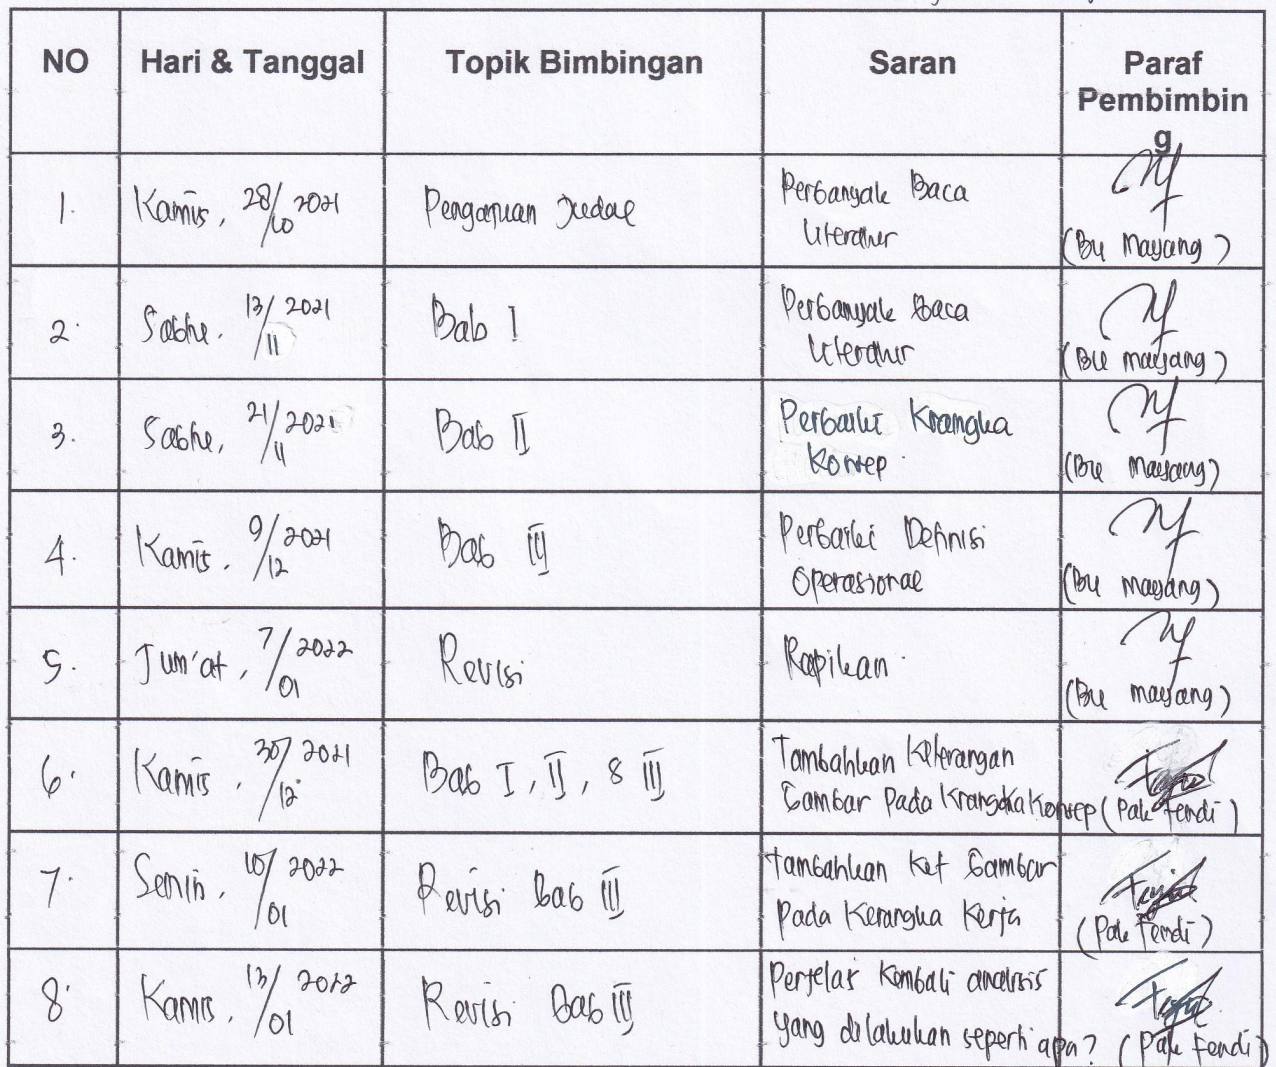 NO Hari & Tanggal Topik Bimbingan Saran Paraf
Pembimbin
g
1. Kamis, 28/10 2021 Pengajuan Judul Perbanyak Baca
Literatur
(Bu Mayang)
2. Sabtu. 13/11 2021 Bab I Perbanyak Baca
Literatur
(Bu Mayang)
3. Sabtu, 21/11 2021 Bab II Perbaiki Krangka
Konsep.
(Bu Mayang)
4. Kamis. 9/12 2021 Bab III Perbaiki Definisi
Operasional
(Bu Mayang)
5. Jum'at, 7/01 2022 Revisi Rapikan.
(Bu Mayang)
6. Kamis. 30/12 2021 Bab I, II, & III Tambahkan Keterangan
Gambar Pada Krangka Konsep (Pak Fendi)
7. Senin. 10/01 2022 Revisi Bab III Tambahkan Ket Gambar
Pada Kerangka Kerja
(Pak Fendi)
8. Kamis. 13/01 2022 Revisi Bab III Perjelas Kembali analisis
yang dilakukan seperti apa? (Pak Fendi)